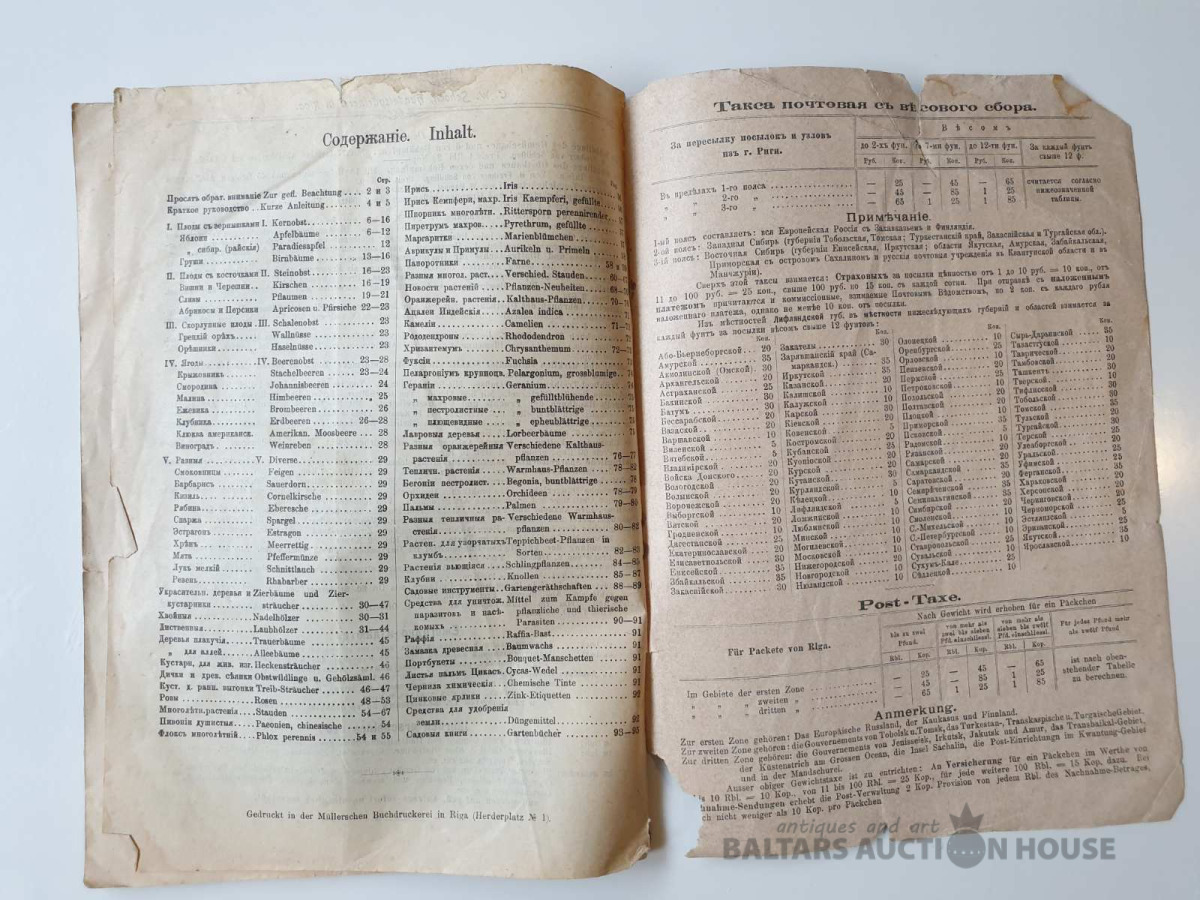 Содержаніе. Inhalt.
Стр.
Просятъ обрат. вниманіе Zur gefl. Beachtung .... 2 и 3
Краткое руководство .. Kurze Anleitung ..... 4 и 5
I. Плоды съ зернышками I. Kernobst ..... 6—16
Яблони ..... Apfelbäume ..... 6—12
„ сибир. (райскія) Paradiesapfel ..... 12
Груши ..... Birnbäume ..... 13—16
II. Плоды съ косточками II. Steinobst ..... 16—23
Вишни и Черешни .. Kirschen ..... 16—19
Сливы ..... Pflaumen ..... 19—21
Абрикосы и Персики Apricosen u. Pfirsiche 22—23
III. Скорлупные плоды . III. Schalenobst ..... 23
Грецкій орѣхъ ..... Wallnüsse ..... 23
Орѣшники ..... Haselnüsse ..... 23
IV. Ягоды ..... IV. Beerenobst ..... 23—28
Крыжовникъ ..... Stachelbeeren ..... 23—24
Смородина ..... Johannisbeeren ..... 24
Малина ..... Himbeeren ..... 25
Ежевика ..... Brombeeren ..... 26
Клубника ..... Erdbeeren ..... 26—28
Клюква американск. Amerikan. Moosbeere ... 28
Виноградъ ..... Weinreben ..... 28
V. Разныя ..... V. Diverse ..... 29
Смоковницы ..... Feigen ..... 29
Барбарисъ ..... Sauerdorn ..... 29
Кизиль ..... Cornelkirsche ..... 29
Рябина ..... Eberesche ..... 29
Спаржа ..... Spargel ..... 29
Эстрагонъ ..... Estragon ..... 29
Хрѣнъ ..... Meerrettig ..... 29
Мята ..... Pfeffermünze ..... 29
Лукъ мелкій ..... Schnittlauch ..... 29
Ревень ..... Rhabarber ..... 29
Украсительн. деревья и Zierbäume und Zier-
кустарники ..... sträucher ..... 30—47
Хвойныя ..... Nadelhölzer ..... 30—31
Лиственныя ..... Laubhölzer ..... 31—44
Деревья плакучія ... Trauerbäume ..... 45
„ для аллей ... Alleebäume ..... 45
Кустарн. для жив. изг. Heckensträucher ..... 46
Дички и древ. сѣмена Obstwildlinge u. Gehölzsäml. 46
Куст. д. ранн. выгонки Treib-Sträucher ..... 46—47
Розы ..... Rosen ..... 48—53
Многолѣтн. растенія ... Stauden ..... 54—67
Пивоніи душистыя ..... Paeonien, chinesische ... 54
Флоксъ многолѣтній ... Phlox perennis ..... 54 и 55
Ирисъ ..... Iris
Ирисъ Кемпфери, махр. Iris Kaempferi, gefüllte
Шпорникъ многолѣтн. Rittersporn perennirender
Пиретрумъ махров. Pyrethrum, gefüllte
Маргаритки ..... Marienblümchen
Аврикулы и Примулы . Aurikeln u. Primeln
Папоротники ..... Farne ..... 58 и
Разныя многол. раст. Verschied. Stauden ... 60—
Новости растеній ... Pflanzen-Neuheiten
Оранжерейн. растенія . Kalthaus-Pflanzen ... 70—
Ацалеи Индейскія ... Azalea indica
Камеліи ..... Camelien ..... 71—
Рододендроны ..... Rhododendron
Хризантемумъ ..... Chrysanthemum ..... 72—
Фуксіи ..... Fuchsia
Пеларгоніумъ крупноцв. Pelargonium, grossblumige
Герани ..... Geranium
„ махровые ..... „ gefülltblühende
„ пестролистные .. „ buntblättrige
„ плющевидные ... „ epheublättrige
Лавровыя деревья .. Lorbeerbäume
Разныя оранжерейныя Verschiedene Kalthaus-
растенія ..... pflanzen ..... 76—77
Тепличн. растенія .. Warmhaus-Pflanzen ... 78—82
Бегоніи пестролист. Begonia, buntblättrige ... 78
Орхидеи ..... Orchideen ..... 78—79
Пальмы ..... Palmen ..... 79—80
Разныя тепличныя ра- Verschiedene Warmhaus-
стенія ..... pflanzen ..... 80—82
Растен. для узорчатыхъ Teppichbeet-Pflanzen in
клумбъ ..... Sorten ..... 82—83
Растенія вьющіяся .. Schlingpflanzen ..... 84—85
Клубни ..... Knollen ..... 85—87
Садовые инструменты .. Gartengeräthschaften ... 88—89
Средства для уничтож. Mittel zum Kampfe gegen
паразитовъ и насѣ- pflanzliche und thierische
комыхъ ..... Parasiten ..... 90—91
Раффія ..... Raffia-Bast ..... 91
Замазка древесная ... Baumwachs ..... 91
Портбукеты ..... Bouquet-Manschetten ... 91
Листья пальмъ Цикасъ. Cycas-Wedel ..... 91
Чернила химическія ... Chemische Tinte ..... 91
Цинковые ярлики ..... Zink-Etiquetten ..... 92
Средства для удобренія
земли ..... Düngemittel ..... 92
Садовыя книги ..... Gartenbücher ..... 93—95
Gedruckt in der Müllerschen Buchdruckerei in Riga (Herderplatz № 1).
Такса почтовая съ вѣсового сбора.
За пересылку посылокъ и узловъ
изъ г. Риги.
Вѣсомъ
до 2-хъ фун. до 7-ми фун. до 12-ти фун. За каждый фунтъ свыше 12 ф.
Руб. Коп. Руб. Коп. Руб. Коп.
Въ предѣлахъ 1-го пояса ..... — 25 — 45 — 65 считается согласно
„ „ 2-го „ ..... — 45 — 85 1 25 нижеозначенной
„ „ 3-го „ ..... — 65 1 25 1 85 таблицы.
Примѣчаніе.
1-ый поясъ составляетъ: вся Европейская Россія съ Кавказомъ и Финляндія.
2-ой поясъ: Западная Сибирь (губерніи Тобольская, Томская; Туркестанскій край, Закаспійская и Тургайская обл.).
3-ій поясъ: Восточная Сибирь (губерніи Енисейская, Иркутская; области Якутская, Амурская, Забайкальская,
Приморская съ островомъ Сахалиномъ и русскія почтовыя учрежденія въ Квантунской области и въ
Манчжуріи).
Сверхъ этой таксы взимается: Страховыхъ за посылки цѣнностью отъ 1 до 10 руб. = 10 коп., отъ
11 до 100 руб. = 25 коп., свыше 100 руб. по 15 коп. съ каждой сотни. При отправкѣ съ наложеннымъ
платежомъ причитаются и коммиссіонные, взимаемые Почтовымъ Вѣдомствомъ, по 2 коп. съ каждаго рубля
наложеннаго платежа, однако не менѣе 10 коп. отъ посылки.
Изъ мѣстностей Лифляндской губ. въ мѣстности нижеслѣдующихъ губерній и областей взимается за
каждый фунтъ за посылки вѣсомъ свыше 12 фунтовъ:
Коп.
Або-Бьернеборгской . 20
Амурской ..... 35
Акмолинской (Омской) 30
Архангельской ..... 20
Астраханской ..... 25
Бакинской ..... 30
Батумъ ..... 30
Бессарабской ..... 20
Вазаской ..... 20
Варшавской ..... 10
Виленской ..... 5
Витебской ..... 5
Владимірской ..... 20
Войска Донского ..... 20
Вологодской ..... 20
Волынской ..... 20
Воронежской ..... 20
Выборгской ..... 10
Вятской ..... 20
Гродненской ..... 10
Дагестанской ..... 25
Екатеринославской ... 20
Елисаветпольской ... 30
Енисейской ..... 35
Збайкальской ..... 35
Закаспійской ..... 30
Коп.
Закаталы ..... 30
Заравшанскій край (Са-
маркандск.) ..... 35
Иркутской ..... 35
Казанской ..... 20
Калишской ..... 10
Калужской ..... 10
Карской ..... 30
Кіевской ..... 20
Ковенской ..... 5
Костромской ..... 20
Кубанской ..... 20
Куопіоской ..... 20
Курской ..... 20
Кутаиской ..... 30
Курляндской ..... 5
Кѣлецкой ..... 10
Лифляндской ..... 5
Ломжинской ..... 10
Люблинской ..... 10
Минской ..... 10
Могилевской ..... 10
Московской ..... 20
Нижегородской ..... 20
Новгородской ..... 10
Нюландской ..... 10
Коп.
Олонецкой ..... 10
Оренбургской ..... 25
Орловской ..... 10
Пензенской ..... 20
Пермской ..... 25
Петроковской ..... 10
Подольской ..... 20
Полтавской ..... 20
Плоцкой ..... 10
Приморской ..... 35
Псковской ..... 5
Радомской ..... 10
Рязанской ..... 20
Самарской ..... 20
Самаркандской ..... 35
Саратовской ..... 20
Семирѣченской ..... 35
Симбирской ..... 20
Смоленской ..... 10
С.-Михельской ..... 10
С.-Петербургской ..... 10
Ставропольской ..... 25
Сувалкской ..... 10
Сухумъ-Кале ..... 25
Сѣдлецкой ..... 10
Коп.
Сыръ-Дарьинской ... 35
Тавастгуской ..... 10
Таврической ..... 20
Тамбовской ..... 20
Ташкентъ
Тверской ..... 10
Тифлисской
Тобольской
Томской ..... 35
Тульской
Тургайской
Терской
Улеаборгской ..... 20
Уральской
Уфимской ..... 25
Ферганской ..... 35
Харьковской ..... 20
Херсонской ..... 20
Черниговской
Черноморской ..... 25
Эстляндской ..... 5
Эриванской
Якутской ..... 35
Ярославской ..... 10
Post-Taxe.
Für Packete von Riga.
Nach Gewicht wird erhoben für ein Päckchen
bis zu zwei Pfund. von mehr als zwei bis sieben Pfd. einschliessl. von mehr als sieben bis zwölf Pfd. einschliessl. Für jedes Pfund mehr als zwölf Pfund
Rbl. Kop. Rbl. Kop. Rbl. Kop.
Im Gebiete der ersten Zone ..... — 25 — 45 — 65 ist nach oben-
„ „ „ zweiten „ ..... — 45 — 85 1 25 stehender Tabelle
„ „ „ dritten „ ..... — 65 1 25 1 85 zu berechnen.
Anmerkung.
Zur ersten Zone gehören: Das Europäische Russland, der Kaukasus und Finnland.
Zur zweiten Zone gehören: die Gouvernements von Tobolsk u. Tomsk, das Turkestan-, Transkaspische u. Turgaische Gebiet.
Zur dritten Zone gehören: die Gouvernements von Jenisseisk, Irkutsk, Jakutsk und Amur, das Transbaikal-Gebiet,
der Küstenstrich am Grossen Ocean, die Insel Sachalin, die Post-Einrichtungen im Kwantung-Gebiet
und in der Mandschurei.
Ausser obiger Gewichtstaxe ist zu entrichten: An Versicherung für ein Päckchen im Werthe von
bis 10 Rbl. = 10 Kop., von 11 bis 100 Rbl. = 25 Kop., für jede weitere 100 Rbl. = 15 Kop. dazu. Bei
Nachnahme-Sendungen erhebt die Post-Verwaltung 2 Kop. Provision von jedem Rbl. des Nachnahme-Betrages,
doch nicht weniger als 10 Kop. pro Päckchen
antiques and art
BALTARS AUCTION HOUSE